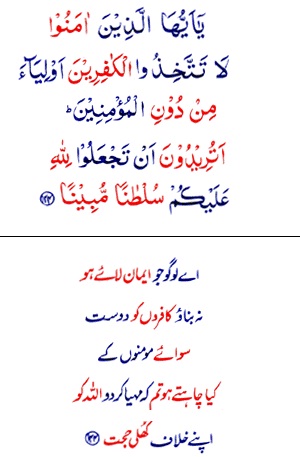 يٰۤاَيُّهَا الَّذِيْنَ اٰمَنُوْا
لَا تَتَّخِذُوا الْكٰفِرِيْنَ اَوْلِيَآءَ
مِنْ دُوْنِ الْمُؤْمِنِيْنَ ؕ
اَتُرِيْدُوْنَ اَنْ تَجْعَلُوْا لِلّٰهِ
عَلَيْكُمْ سُلْطٰنًا مُّبِيْنًا ﴿۱۴۴﴾
اے لوگو جو ایمان لائے ہو
نہ بناؤ کافروں کو دوست
سوائے مومنوں کے
کیا چاہتے ہو تم کہ مہیا کر دو اللہ کو
اپنے خلاف کھلی حجت ﴿۱۴۴﴾